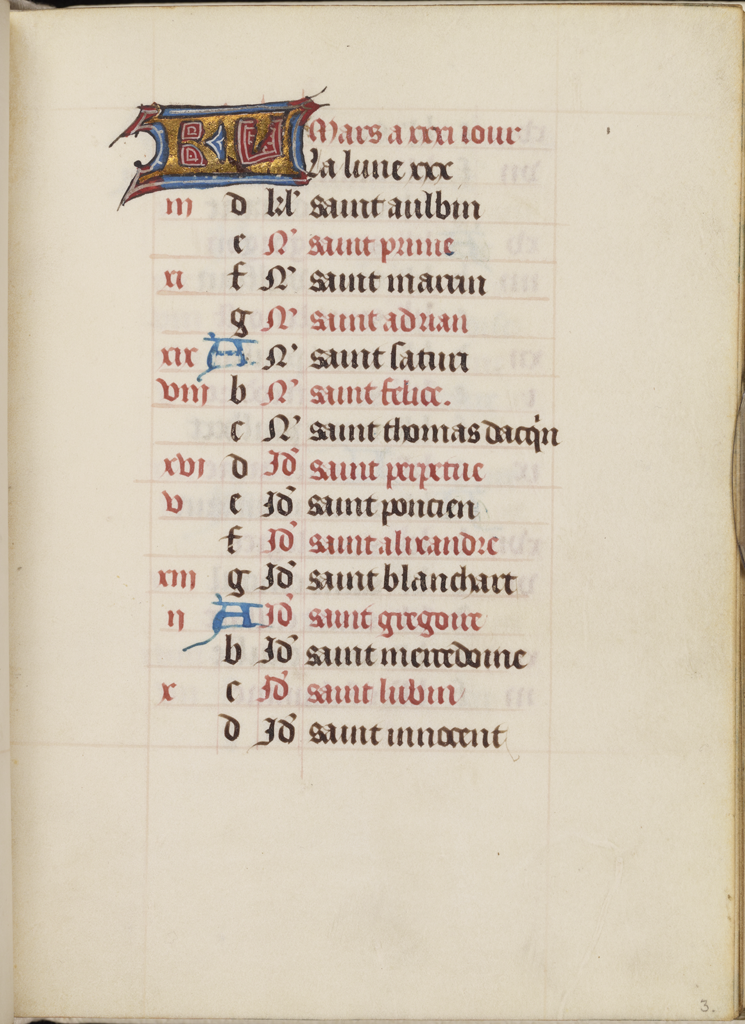 KL Mars a xxxi iour
La lune xxx
iii d kl' saint aulbin
e N' saint prime
xi f N' saint martin
g N' saint adrian
xix A N' saint saturi
viii b N' saint felice.
c N' saint thomas dacq̃n
xvi d Id' saint perpetue
v e Id' saint poncien
f Id' saint alixandre
xiii g Id' saint blanchart
ii A Id' saint gregoire
b Id' saint
x c Id' saint lubin
d Id' saint innocent
3.